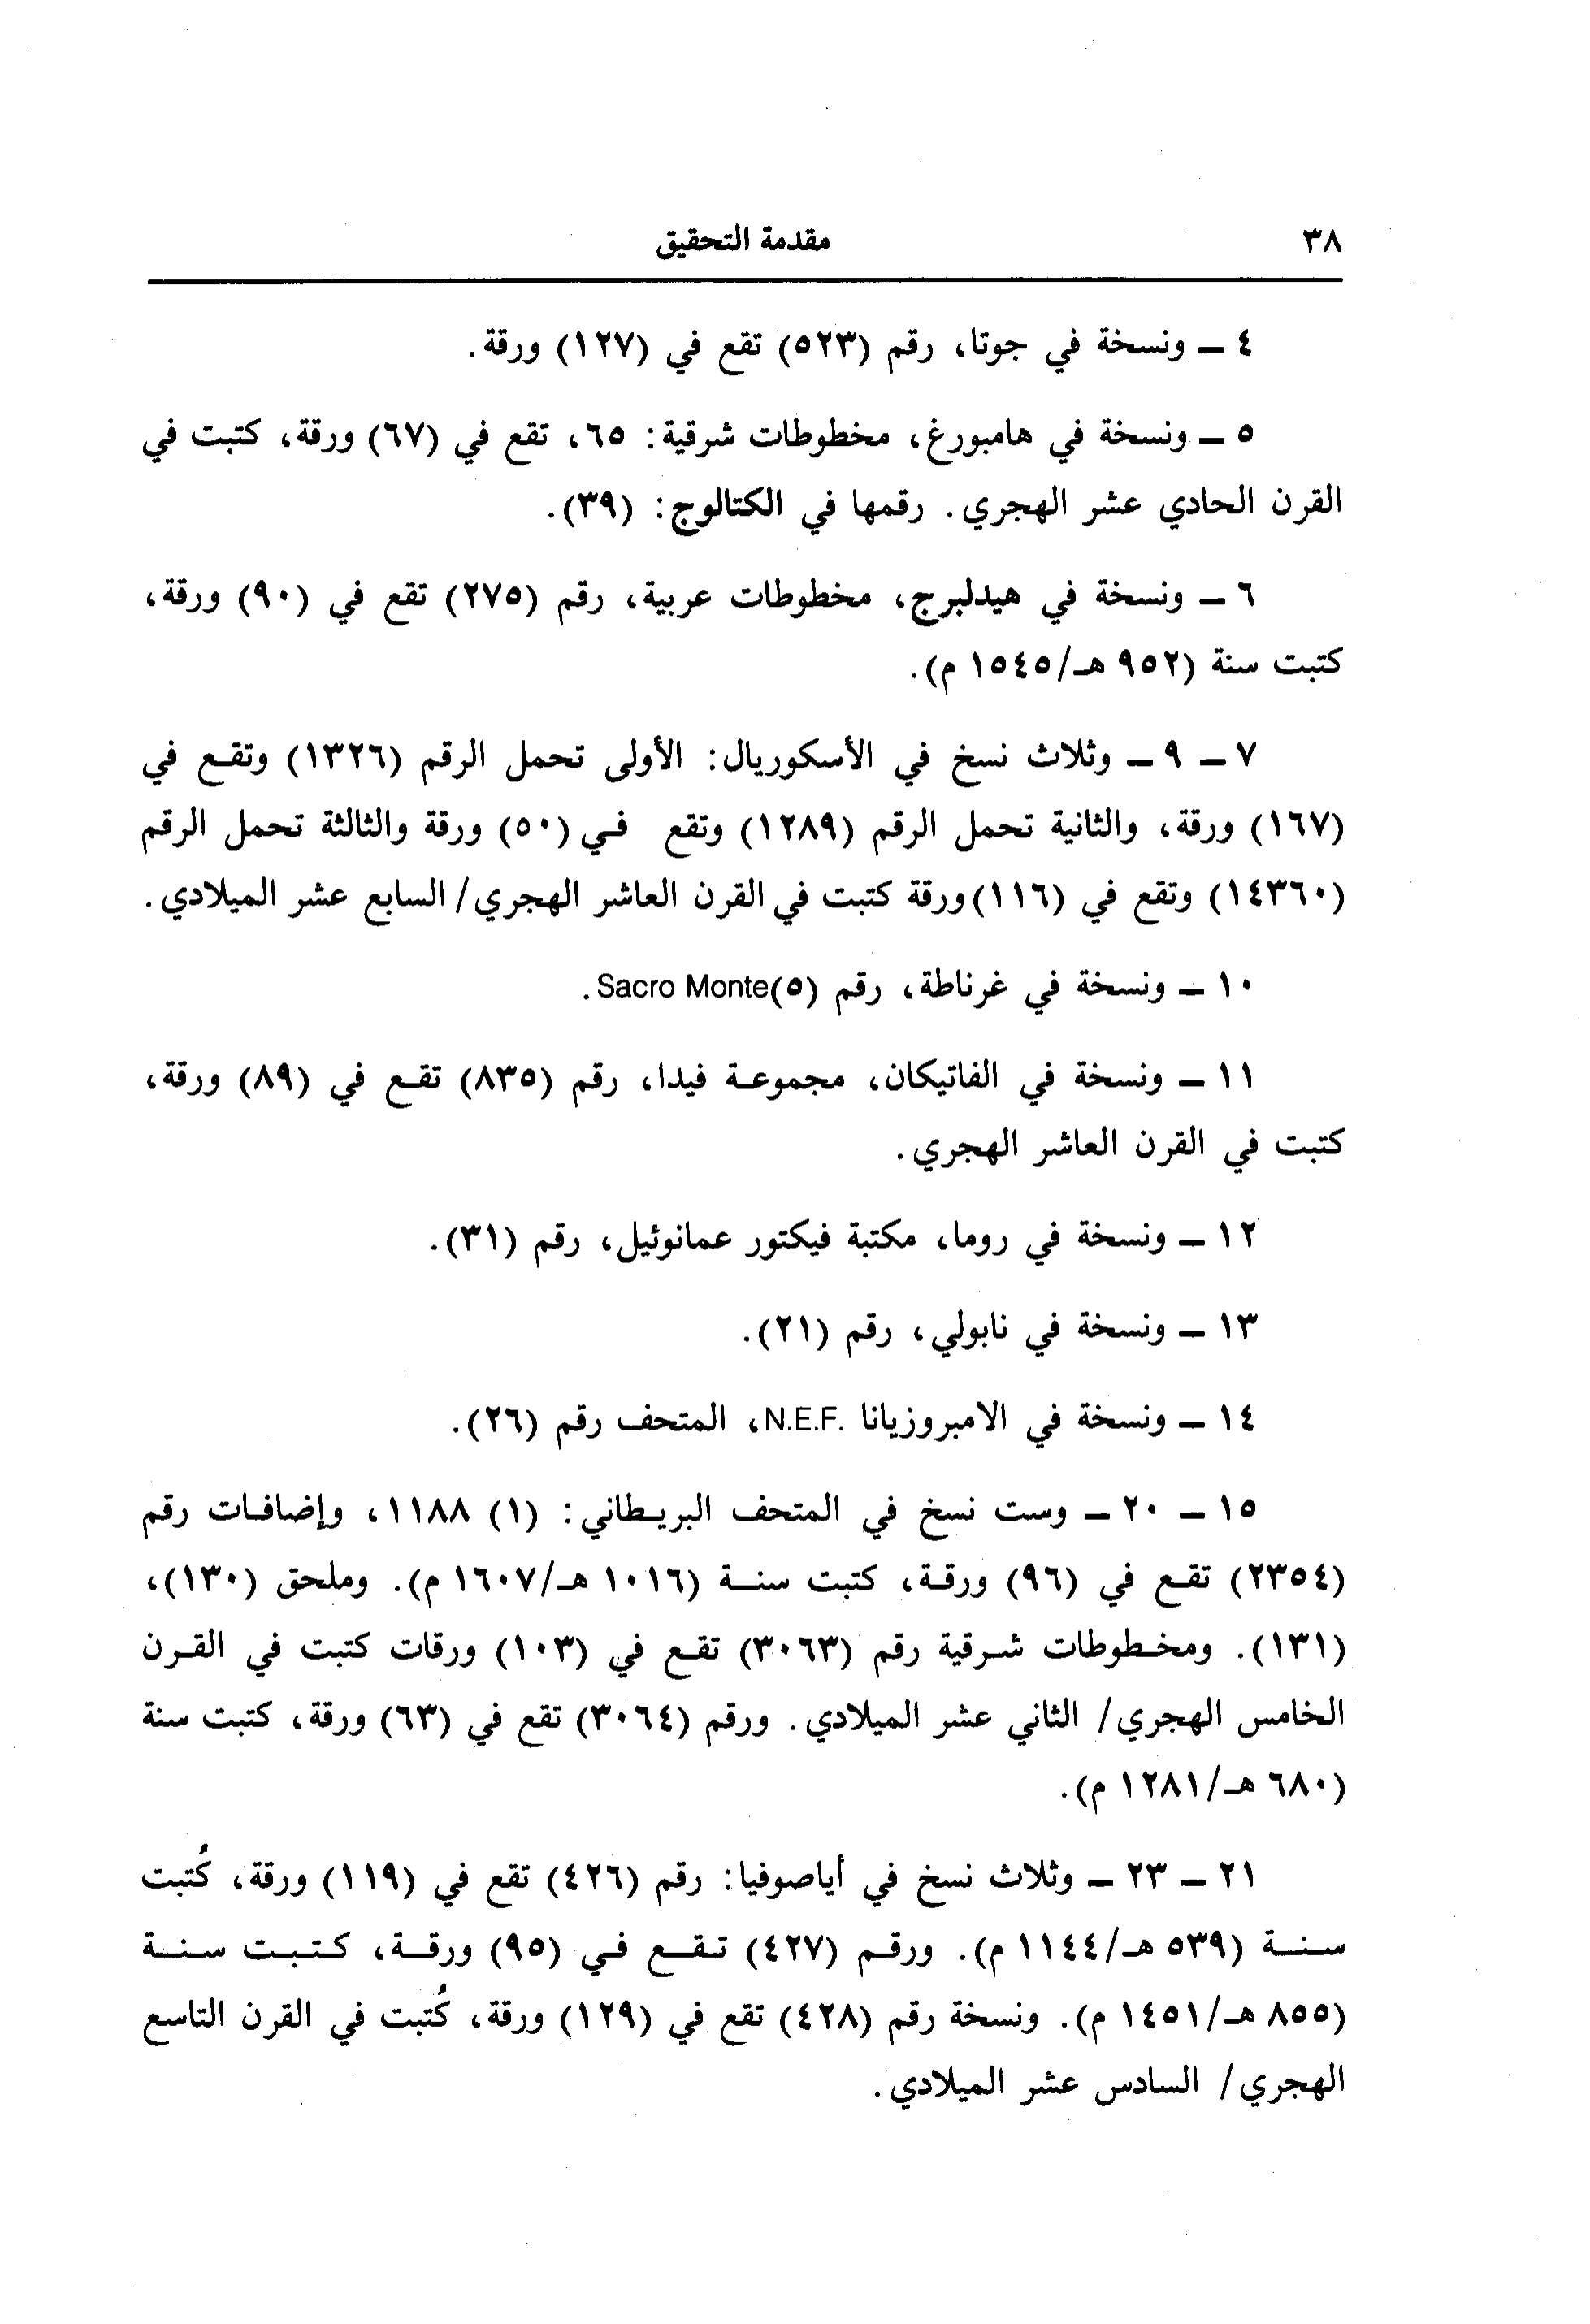 ٣٨ مقدمة التحقيق
٤ ــ ونسخة في جوتا، رقم (٥٢٣) تقع في (١٢٧) ورقة.
٥ ــ ونسخة في هامبورغ، مخطوطات شرقية: ٦٥، تقع في (٦٧) ورقة، كتبت في
القرن الحادي عشر الهجري. رقمها في الكتالوج: (٣٩).
٦ ــ ونسخة في هيدلبرج، مخطوطات عربية، رقم (٢٧٥) تقع في (٩٠) ورقة،
كتبت سنة (٩٥٢ هـ/١٥٤٥ م).
٧ ــ ٩ ــ وثلاث نسخ في الأسكوريال: الأولى تحمل الرقم (١٣٢٦) وتقع في
(١٦٧) ورقة، والثانية تحمل الرقم (١٢٨٩) وتقع في (٥٠) ورقة والثالثة تحمل الرقم
(١٤٣٦٠) وتقع في (١١٦) ورقة كتبت في القرن العاشر الهجري/ السابع عشر الميلادي.
١٠ ــ ونسخة في غرناطة، رقم (٥)Sacro Monte.
١١ ــ ونسخة في الفاتيكان، مجموعة فيدا، رقم (٨٣٥) تقع في (٨٩) ورقة،
كتبت في القرن العاشر الهجري.
١٢ ــ ونسخة في روما، مكتبة فيكتور عمانوئيل، رقم (٣١).
١٣ ــ ونسخة في نابولي، رقم (٢١).
١٤ ــ ونسخة في الامبروزيانا N.E.F.، المتحف رقم (٢٦).
١٥ ــ ٢٠ ــ وست نسخ في المتحف البريطاني: (١) ١١٨٨، وإضافات رقم
(٢٣٥٤) تقع في (٩٦) ورقة، كتبت سنة (١٠١٦ هـ/١٦٠٧ م). وملحق (١٣٠)،
(١٣١). ومخطوطات شرقية رقم (٣٠٦٣) تقع في (١٠٣) ورقات كتبت في القرن
الخامس الهجري/ الثاني عشر الميلادي. ورقم (٣٠٦٤) تقع في (٦٣) ورقة، كتبت سنة
(٦٨٠ هـ/١٢٨١ م).
٢١ ــ ٢٣ ــ وثلاث نسخ في أياصوفيا: رقم (٤٢٦) تقع في (١١٩) ورقة، كُتبت
سنة (٥٣٩ هـ/١١٤٤ م). ورقم (٤٢٧) تقع في (٩٥) ورقة، كتبت سنة
(٨٥٥ هـ/١٤٥١ م). ونسخة رقم (٤٢٨) تقع في (١٢٩) ورقة، كُتبت في القرن التاسع
الهجري/ السادس عشر الميلادي.